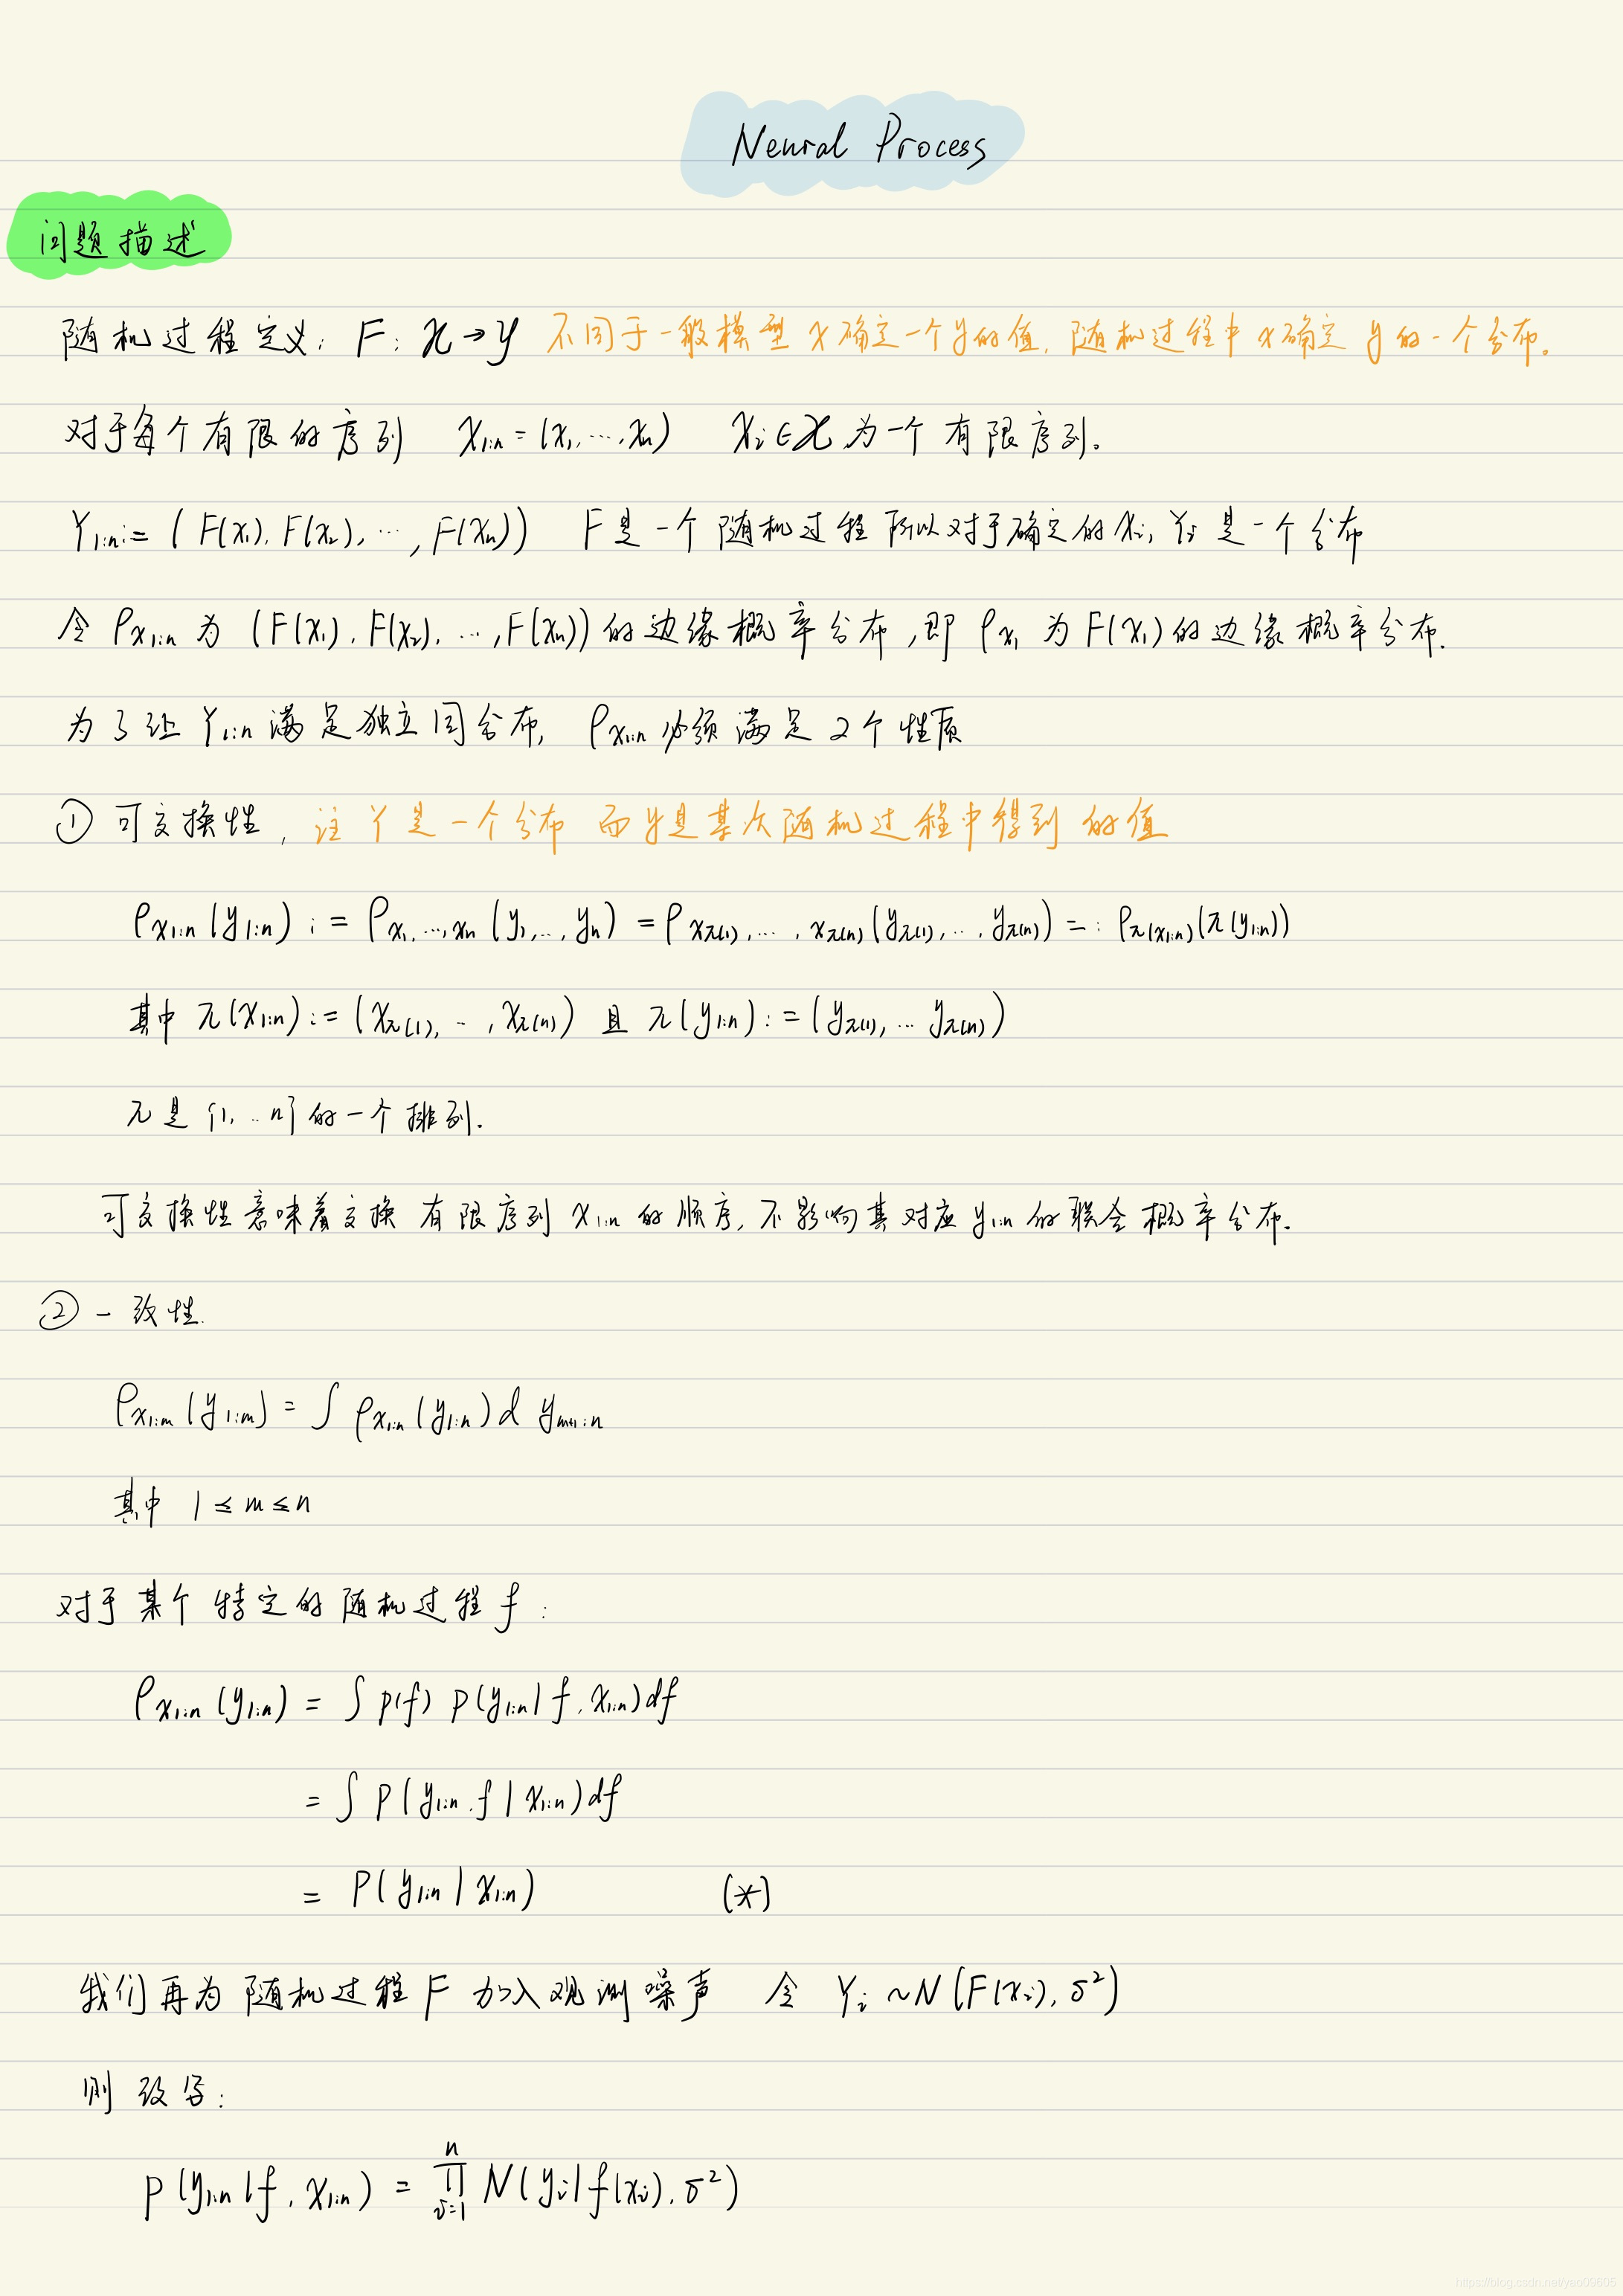 Neural Process
问题描述
随机过程定义: F: 𝒳→𝒴 不同于一般模型 x确定一个y的值, 随机过程中 x确定 y的一个分布。
对于每个有限的序列 x₁:ₙ = (x₁, ..., xₙ) xᵢ∈𝒳 为一个有限序列.
Y₁:ₙ := (F(x₁), F(x₂), ..., F(xₙ)) F是一个随机过程 所以对于确定的xᵢ, Yᵢ是一个分布
令 ρ_{x₁:ₙ} 为 (F(x₁), F(x₂), ..., F(xₙ)) 的边缘概率分布, 即 ρ_{x₁} 为F(x₁)的边缘概率分布.
为了让 Y₁:ₙ 满足独立同分布, ρ_{x₁:ₙ} 必须满足2个性质
① 可交换性, 注 Y是一个分布 而y是某次随机过程中得到的值
ρ_{x₁:ₙ}(y₁:ₙ) := ρ_{x₁,...,xₙ}(y₁,..,yₙ) = ρ_{x_{π(1)},...,x_{π(n)}}(y_{π(1)},..,y_{π(n)}) =: ρ_{π(x₁:ₙ)}(π(y₁:ₙ))
其中 π(x₁:ₙ) := (x_{π(1)}, .., x_{π(n)}) 且 π(y₁:ₙ) := (y_{π(1)}, ... y_{π(n)})
π是{1, .. n}的一个排列.
可交换性意味着交换有限序列 x₁:ₙ 的顺序, 不影响其对应 y₁:ₙ 的联合概率分布.
② 一致性.
ρ_{x₁:ₘ}(y₁:ₘ) = ∫ ρ_{x₁:ₙ}(y₁:ₙ) d y_{m+1:n}
其中 1 ≤ m ≤ n
对于某个特定的随机过程 f :
ρ_{x₁:ₙ}(y₁:ₙ) = ∫ p(f) p(y₁:ₙ | f, x₁:ₙ) df
= ∫ p(y₁:ₙ, f | x₁:ₙ) df
= P(y₁:ₙ | x₁:ₙ) (*)
我们再为随机过程F 加入观测噪声 令 Yᵢ ~ N(F(xᵢ), σ²)
则改写:
p(y₁:ₙ | f, x₁:ₙ) = ∏_{i=1}^{n} N(yᵢ | f(xᵢ), σ²)
https://blog.csdn.net/yao09605